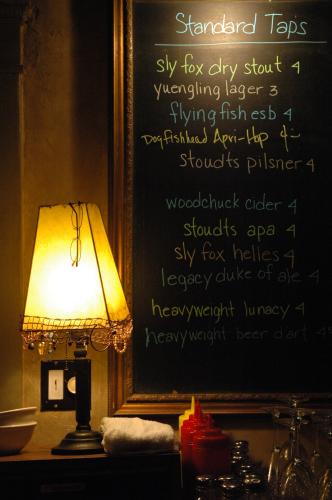 Standard Taps
sly fox dry stout 4
yuengling lager 3
flying fish esb 4
Dogfishhead Apri-Hop 4
stoudts pilsner 4
woodchuck cider 4
stoudts apa 4
sly fox helles 4
legacy duke of ale 4
heavyweight lunacy 4
heavyweight beer d'art